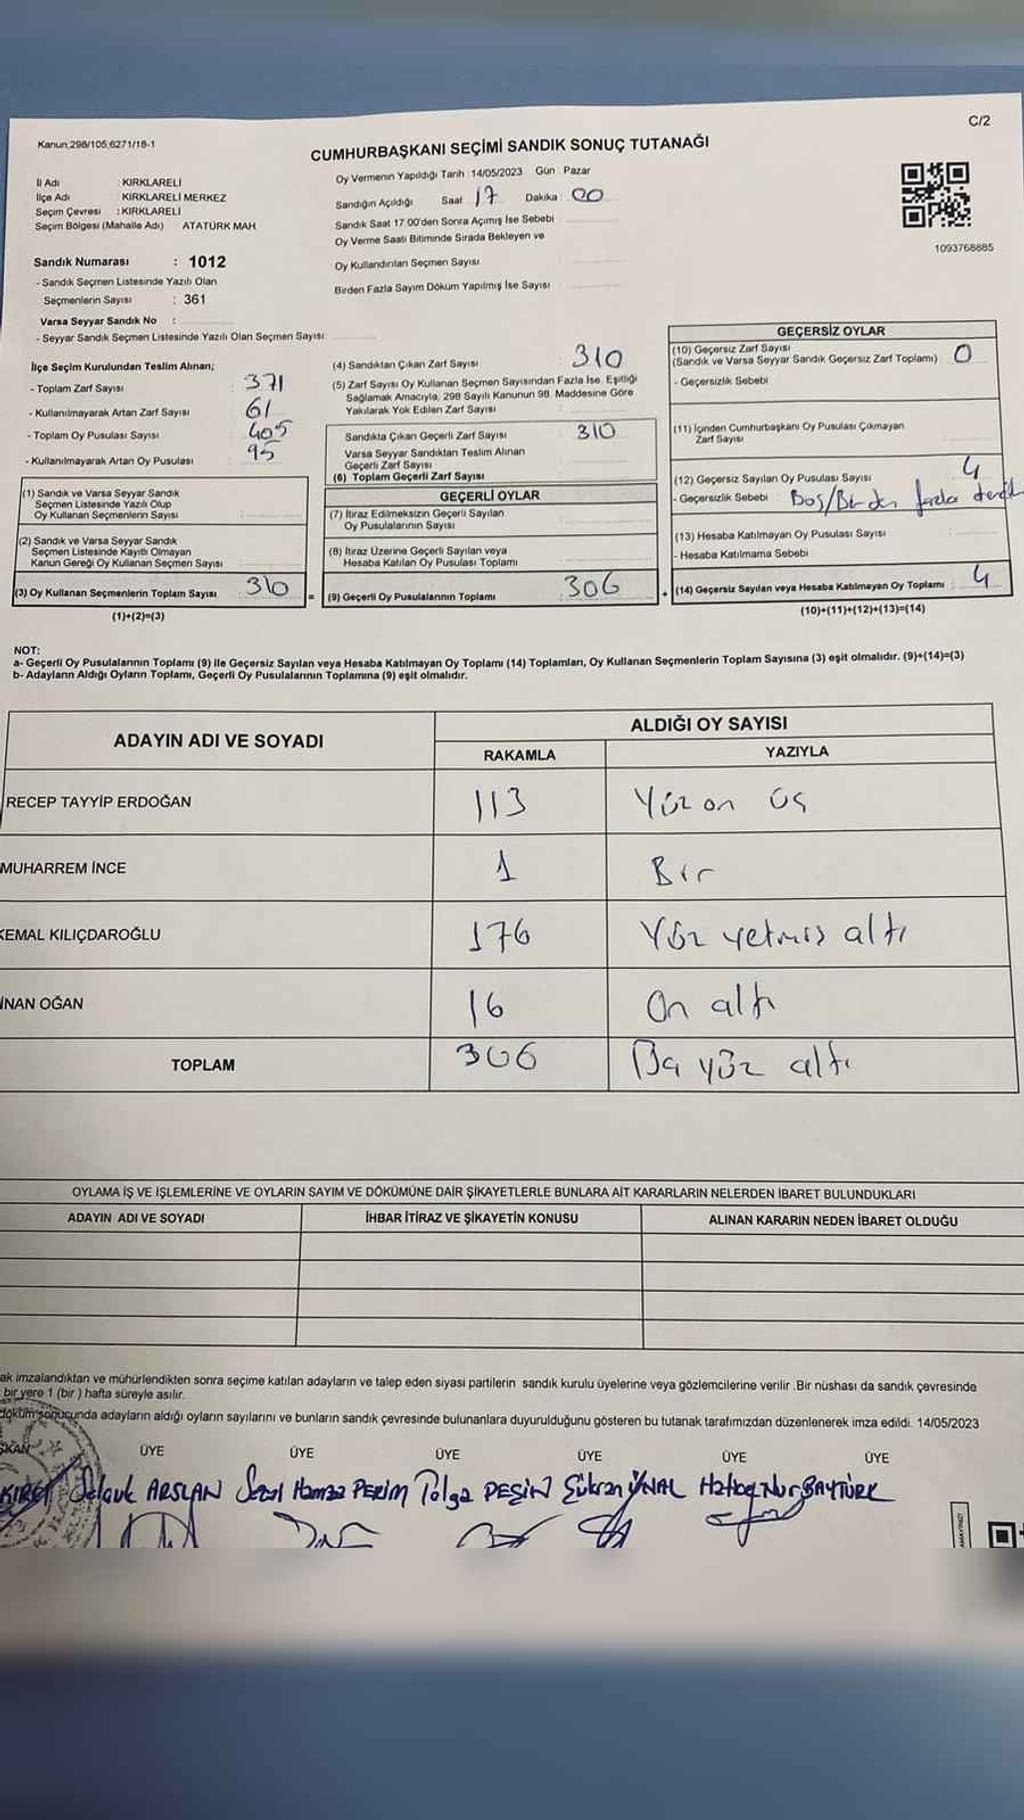 C/2
Kanun;298/105;6271/18-1
CUMHURBAŞKANI SEÇİMİ SANDIK SONUÇ TUTANAĞI
İl Adı : KIRKLARELİ
İlçe Adı KIRKLARELİ MERKEZ
Seçim Çevresi : KIRKLARELİ
Seçim Bölgesi (Mahalle Adı) ATATÜRK MAH
Oy Vermenin Yapıldığı Tarih :14/05/2023 Gün : Pazar
Sandığın Açıldığı Saat 17 Dakika 00
Sandık Saat 17:00'den Sonra Açımış İse Sebebi
Oy Verme Saati Bitiminde Sırada Bekleyen ve
Oy Kullandırılan Seçmen Sayısı
Birden Fazla Sayım Döküm Yapılmış İse Sayısı
1093768885
Sandık Numarası : 1012
- Sandık Seçmen Listesinde Yazılı Olan
Seçmenlerin Sayısı : 361
Varsa Seyyar Sandık No :
- Seyyar Sandık Seçmen Listesinde Yazılı Olan Seçmen Sayısı:
İlçe Seçim Kurulundan Teslim Alınan;
- Toplam Zarf Sayısı 371
- Kullanılmayarak Artan Zarf Sayısı 61
- Toplam Oy Pusulası Sayısı 405
- Kullanılmayarak Artan Oy Pusulası 95
(1) Sandık ve Varsa Seyyar Sandık
Seçmen Listesinde Yazılı Olup
Oy Kullanan Seçmenlerin Sayısı
(2) Sandık ve Varsa Seyyar Sandık
Seçmen Listesinde Kayıtlı Olmayan
Kanun Gereği Oy Kullanan Seçmen Sayısı
(3) Oy Kullanan Seçmenlerin Toplam Sayısı 310 =
(1)+(2)=(3)
(4) Sandıktan Çıkan Zarf Sayısı 310
(5) Zarf Sayısı Oy Kullanan Seçmen Sayısından Fazla İse, Eşitliği
Sağlamak Amacıyla, 298 Sayılı Kanunun 98. Maddesine Göre
Yakılarak Yok Edilen Zarf Sayısı
Sandıkta Çıkan Geçerli Zarf Sayısı 310
Varsa Seyyar Sandıktan Teslim Alınan
Geçerli Zarf Sayısı
(6) Toplam Geçerli Zarf Sayısı
GEÇERLİ OYLAR
(7) İtiraz Edilmeksizin Geçerli Sayılan
Oy Pusulalarının Sayısı
(8) İtiraz Üzerine Geçerli Sayılan veya
Hesaba Katılan Oy Pusulası Toplamı
(9) Geçerli Oy Pusulalarının Toplamı : 306 +
GEÇERSİZ OYLAR
(10) Geçersiz Zarf Sayısı
(Sandık ve Varsa Seyyar Sandık Geçersiz Zarf Toplamı) 0
- Geçersizlik Sebebi
(11) İçinden Cumhurbaşkanı Oy Pusulası Çıkmayan
Zarf Sayısı
(12) Geçersiz Sayılan Oy Pusulası Sayısı 4
- Geçersizlik Sebebi : Boş/Birden fazla
(13) Hesaba Katılmayan Oy Pusulası Sayısı
- Hesaba Katılmama Sebebi
(14) Geçersiz Sayılan veya Hesaba Katılmayan Oy Toplamı 4
(10)+(11)+(12)+(13)=(14)
NOT:
a- Geçerli Oy Pusulalarının Toplamı (9) ile Geçersiz Sayılan veya Hesaba Katılmayan Oy Toplamı (14) Toplamları, Oy Kullanan Seçmenlerin Toplam Sayısına (3) eşit olmalıdır. (9)+(14)=(3)
b- Adayların Aldığı Oyların Toplamı, Geçerli Oy Pusulalarının Toplamına (9) eşit olmalıdır.
ADAYIN ADI VE SOYADI
ALDIĞI OY SAYISI
RAKAMLA YAZIYLA
RECEP TAYYİP ERDOĞAN 113 Yüz on üç
MUHARREM İNCE 1 Bir
KEMAL KILIÇDAROĞLU 176 Yüz yetmiş altı
İNAN OĞAN 16 On altı
TOPLAM 306 yüz altı
OYLAMA İŞ VE İŞLEMLERİNE VE OYLARIN SAYIM VE DÖKÜMÜNE DAİR ŞİKAYETLERLE BUNLARA AİT KARARLARIN NELERDEN İBARET BULUNDUKLARI
ADAYIN ADI VE SOYADI İHBAR İTİRAZ VE ŞİKAYETİN KONUSU ALINAN KARARIN NEDEN İBARET OLDUĞU
ak imzalandıktan ve mühürlendikten sonra seçime katılan adayların ve talep eden siyasi partilerin sandık kurulu üyelerine veya gözlemcilerine verilir .Bir nüshası da sandık çevresinde
bir yere 1 (bir ) hafta süreyle asılır.
döküm sonucunda adayların aldığı oyların sayılarını ve bunların sandık çevresinde bulunanlara duyurulduğunu gösteren bu tutanak tarafımızdan düzenlenerek imza edildi. 14/05/2023
ŞKAN ÜYE ÜYE ÜYE ÜYE ÜYE ÜYE
Selçuk ARSLAN Hamza PERİM Tolga PEŞİN Şükran ÜNAL Hatice Nur BAYTÜRK